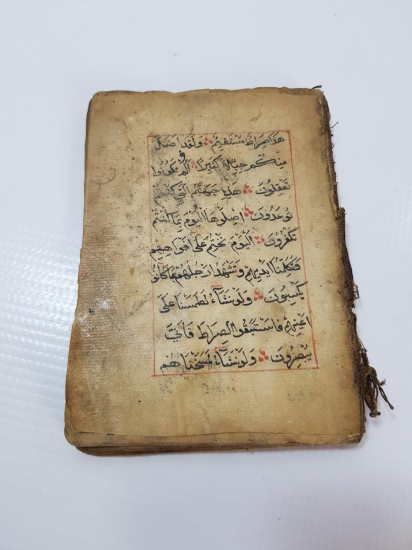 هذا صراط مستقيم ولقد اضل
منكم جبلا كثيرا افلم تكونوا
تعقلون هذه جهنم التي كنتم
توعدون اصلوها اليوم بما كنتم
تكفرون اليوم نختم على افواههم
وتكلمنا ايديهم وتشهد ارجلهم بما كانوا
يكسبون ولو نشاء لطمسنا على
اعينهم فاستبقوا الصراط فانى
يبصرون ولو نشاء لمسخناهم